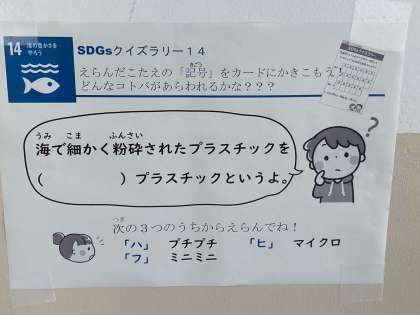 14 海の豊かさを
守ろう
SDGsクイズラリー１４
えらんだこたえの「記号」をカードにかきこもう！
きごう
どんなコトバがあらわれるかな？？？
うみ こま ふんさい
海で細かく粉砕されたプラスチックを
（　　　　　）プラスチックというよ。
?
つぎ
次の３つのうちからえらんでね！
「ハ」 プチプチ 「ヒ」 マイクロ
「フ」 ミニミニ